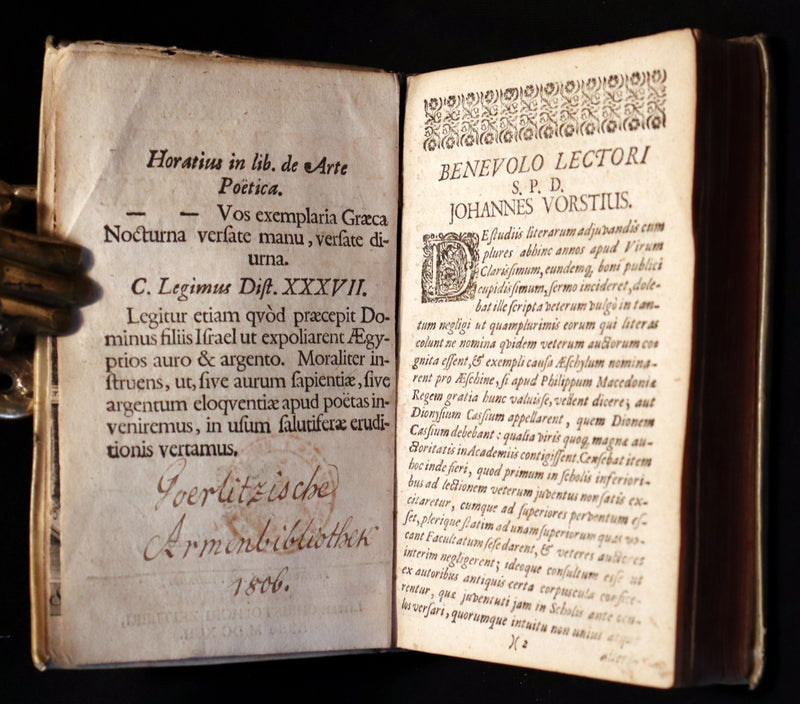 Horatius in lib. de Arte
Poëtica.
— — Vos exemplaria Græca
Nocturna verſate manu, verſate di-
urna.
C. Legimus Diſt. XXXVII.
Legitur etiam qvòd præcepit Do-
minus filiis Iſrael ut expoliarent Ægy-
ptios auro & argento. Moraliter in-
ſtruens, ut, ſive aurum ſapientiæ, ſive
argentum eloqventiæ apud poëtas in-
veniremus, in uſum ſalutiferæ erudi-
tionis vertamus.
Goerlitzische
Armenbibliothek
1806.
BENEVOLO LECTORI
S. P. D.
JOHANNES VORSTIUS.
DE ſtudiis literarum adjuvandis cum
plures abhinc annos apud Virum
Clariſſimum, eundemq; boni publici
cupidiſſimum, ſermo incideret, dole-
bat ille ſcripta veterum vulgò in tan-
tum negligi ut quamplurimis eorum qui literas
colunt ne nomina qvidem veterum auctorum co-
gnita eſſent, & exempli cauſa Æſchylum nomina-
rent pro Æſchine, ſi apud Philippum Macedoniæ
Regem gratia hunc valuiſſe, vellent dicere; aut
Dionyſium Caſſium appellarent, quem Dionem
Caſſium debebant: qualia viris quoq; magnæ au-
ctoritatis in Academiis contigiſſent. Cenſebat item
hoc inde fieri, quod primum in ſcholis inferiori-
bus ad lectionem veterum juventus non ſatis ex-
citaretur, cumque ad ſuperiores perventum eſ-
ſet, plerique ſtatim ad unam ſuperiorum quas vo-
cant Facultatum ſeſe darent, & veteres auctores
interim negligerent; ideoque conſultum eſſe ut
ex autoribus antiquis certa corpuscula confice-
rentur, quæ juventuti jam in Scholis ante ocu-
los verſari, quorumque intuitu non unius atque
)( 2